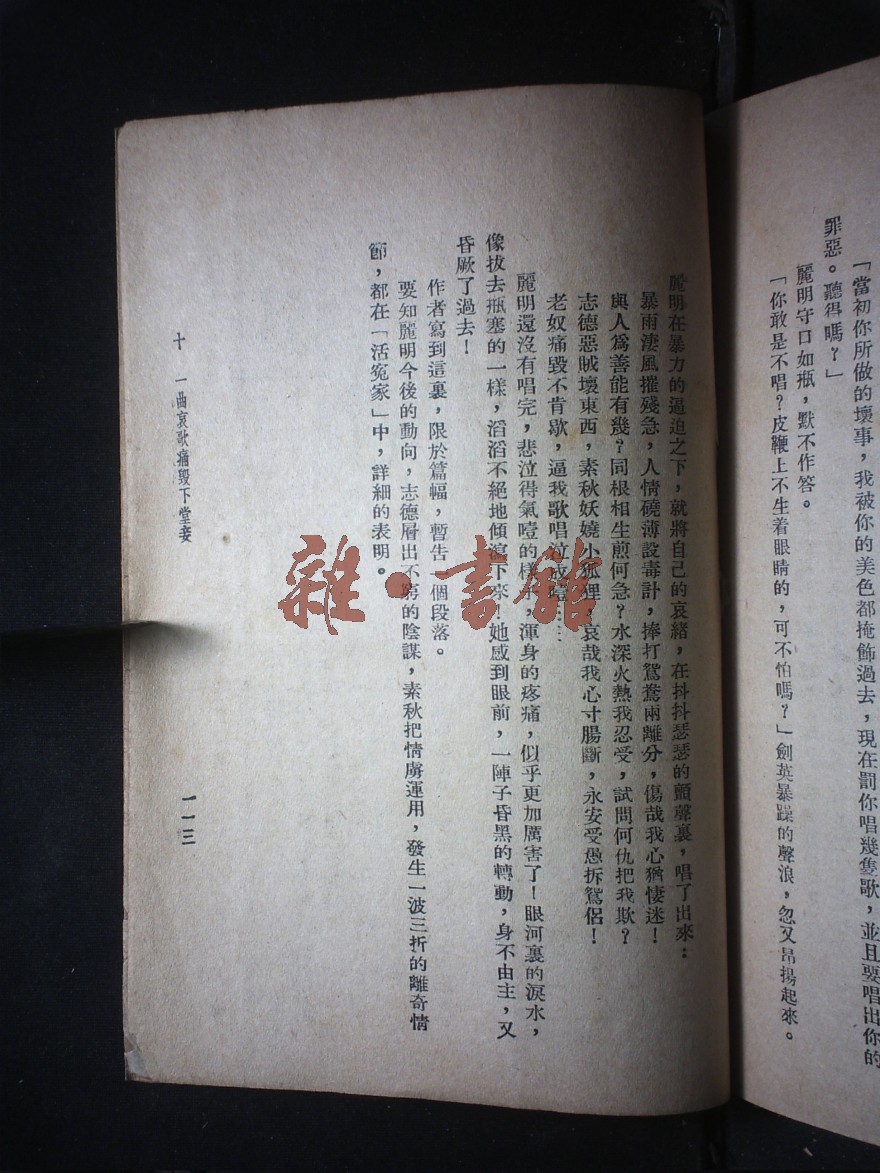 「當初你所做的壞事，我被你的美色都掩飾過去，現在罰你唱幾隻歌，並且要唱出你的
罪惡。聽得嗎？」
麗明守口如瓶，默不作答。
「你敢是不唱？皮鞭上不生着眼睛的，可不怕嗎？」劍英暴躁的聲浪，忽又昂揚起來。
麗明在暴力的逼迫之下，就將自己的哀緒，在抖抖瑟瑟的顫聲裏，唱了出來：
暴雨淒風摧殘急，人情磽薄設毒計，捧打鴛鴦兩離分，傷哉我心猶悽迷！
與人爲善能有幾？同根相生煎何急？水深火熱我忍受，試問何仇把我欺？
志德惡賊壞東西，素秋妖嬈小狐狸，哀哉我心寸腸斷，永安受愚拆鴛侶！
老奴痛毀不肯歇，逼我歌唱泣成噎⋯⋯
麗明還沒有唱完，悲泣得氣噎的樣子，渾身的疼痛，似乎更加厲害了！眼河裏的淚水，
像拔去瓶塞的一樣，滔滔不絕地傾瀉下來！她感到眼前，一陣子昏黑的轉動，身不由主，又
昏厥了過去！
作者寫到這裏，限於篇幅，暫告一個段落。
要知麗明今後的動向，志德層出不窮的陰謀，素秋把情虜運用，發生一波三折的離奇情
節，都在「活寃家」中，詳細的表明。
十 一曲哀歌痛毀下堂妾
一一三
雜·書館